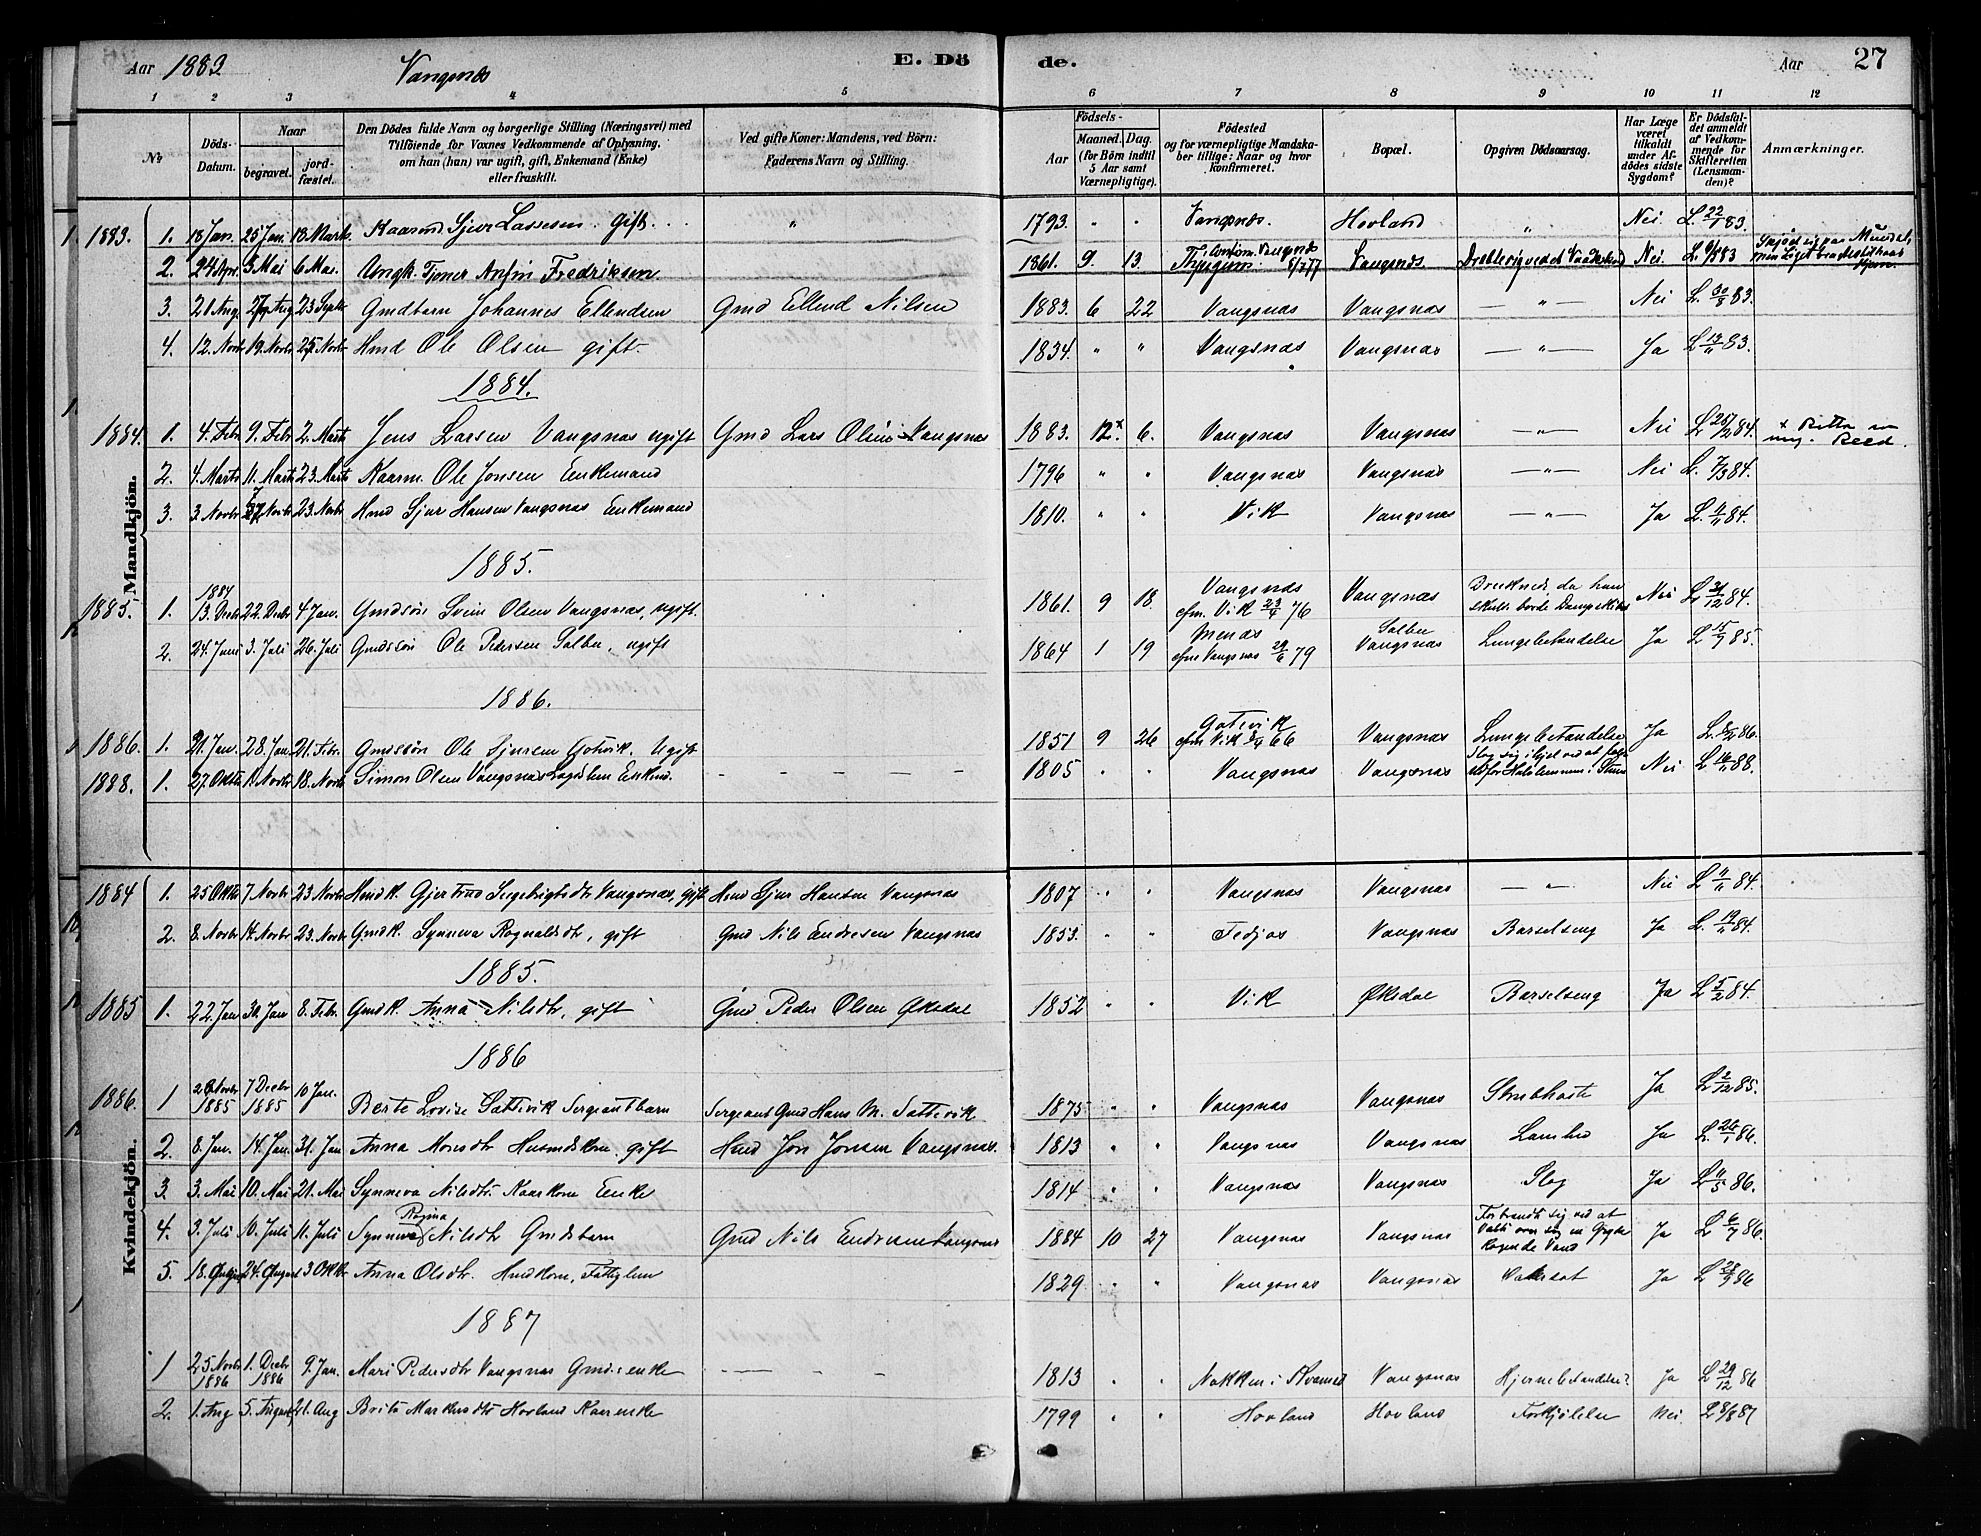 Aar 1883 Vangsnæs E. Dö de. Aar 27
1 2 3 4 5 6 7 8 9 10 11 12
No
Döds-Datum.
Naar
begravet.
jord-fæstet.
Den Dödes fulde Navn og borgerlige Stilling (Næringsvei) med
Tilföiende for Voxnes Vedkommende af Oplysning,
om han (hun) var ugift, gift, Enkemand (Enke)
eller fraskilt.
Ved gifte Koner: Mandens, ved Börn:
Faderens Navn og Stilling.
Födsels-
Aar
Maaned. Dag.
(for Börn indtil
5 Aar samt
Værnepligtige).
Födested
og for værnepligtige Mandska-
ber tillige: Naar og hvor
konfirmeret.
Bopæl.
Opgiven Dödsaarsag.
Har Læge
været
tilkaldt
under Af-
dödes sidste
Sygdom?
Er Dödsfal-
det anmeldt
af Vedkom-
mende for
Skifteretten
(Lensman-
den)?
Anmærkninger.
Mandkjön.
1883. 1. 18 Jan. 25 Jan. 18 Marts Kaarmd Sjur Lassesen. Gift. " 1793. " " Vangsnæs. Hovland " Nei L. 22/1 83.
2. 24 Apr. 3 Mai 6 Mai. Ungk. Anfin Fredriksen 1861. 9. 13. Vangsnæs. Nei. L.
3. 21 Aug. 27 Aug 23 Septr Gmdbarn Johannes Ellendsen Gmd Ellend Nilsen 1883. 6 22 Vangsnæs Vangsnæs " Nei L. 30/8 83.
4. 12. Novbr 19. Novbr 25 Novbr Hmd Ole Olsen gift. 1834. " " Vangsnæs Vangsnæs " Ja L 13/11 83.
1884.
1884. 1. 4. Febr 9. Febr 2. Marts Jens Larsen Vangsnæs ugift Gmd Lars Olsen Vangsnæs 1883. 12.x 6. Vangsnæs Vangsnæs " Nei L 25/2 84.
2. 4. Marts 11. Marts 23. Marts Kaarm. Ole Jonsen Enkemand 1796 " " Vangsnæs Vangsnæs " Nei L. 7/3 84.
3. 3. Novbr Novbr 23. Novbr Hmd Sjur Hansen Vangsnæs Enkemand 1810. " " Vik Vangsnæs " Ja L. 84.
1885.
1885. 1. 1884 13. Decbr 22. Decbr 4 Jan. Gmdsön Svein Olsen Vangsnæs, ugift. 1861. 9 18. Vangsnæs cfm. Vik 23/4 76 Vangsnæs Druknede, da han skulde borde Dampskibet Nei L 84.
2. 24. Juni 3. Juli 26. Juli Gmdssön Ole Pedersen Salbu, ugift 1864 1 19 Menæs cfm Vangsnæs 29/6 79 Salbu Vangsnæs Lungebetændelse Ja L 85.
1886.
1886. 1. 21. Jan. 28. Jan. 21. Febr. Gmdssön Ole Sjursen Gotevik. Ugift 1851 9 26 Gotevik cfm Vik 66 Vangsnæs Lungebetændelse Ja L. 86.
1888. 1. 27. Oktbr 1. Novbr 18. Novbr Simon Olsen Vangsnæs Enkmd. 1805 " " Vangsnæs Vangsnæs Slog sig ihjel ved at falde Nei L 88.
Kvindekjön.
1884 1. 25 Oktbr 7. Novbr 23. Novbr Hmdk. Gjertrud Vangsnæs, gift Hmd Sjur Hansen Vangsnæs 1807 " " Vangsnæs Vangsnæs " Nei L 11/11 84.
2. 8. Novbr 14. Novbr 23. Novbr Gmdk. Synneva Rognaldsdtr, gift Gmd Nils Endresen Vangsnæs 1853. " " Fedjos Vangsnæs Barselseng Ja L. 19/11 84.
1885.
1885 1. 22. Jan 30. Jan 8. Febr. Gmdk. Anna Nilsdtr, gift Gmd Peder Olsen Øksdal 1852 " " Vik Øksdal Barselseng Ja L 5/2 84.
1886
1886. 1 26 Novbr 1885 7 Decbr 1885 10 Jan. Berte Lovise Sattevik Sergeantbarn Sergeant Gmd Hans M. Sattevik 1875 " " Vangsnæs Vangsnæs Strubhoste Ja L 2/12 85.
2. 8. Jan. 14. Jan. 31. Jan Anna Monsdtr Husmdskone. gift Hmd Jon Jonsen Vangsnæs. 1813 " " Vangsnæs Vangsnæs Lamhed Ja L. 26/1 86.
3. 3. Mai 10. Mai 21. Mai Synneva Nilsdtr. Kaarkone Enke 1814 " " Vangsnæs Vangsnæs Slag Ja L 11/5 86.
4. 3. Juli 10. Juli 11. Juli Synneva Ragna Nilsdtr Gmdsbarn Gmd Nils Endresen Vangsnæs 1884 10 27 Vangsnæs Vangsnæs Forbrændte sig ved at vælte over sig en Gryde kogende Vand Ja L 6/7 86.
5. 18. August 24. August 3 Oktbr Anna Olsdtr. Hmdkone, Fattiglem 1829 " " Vangsnæs Vangsnæs Vattersot Ja L 28/9 86
1887
1 25 Novbr 1886 1. Decbr 1886 9. Jan. Mari Pedersdtr Vangsnæs Gmdsenke 1813 " " Nokken i Vangsnæs Hjernebetændelse? Ja L 29/12 86
2. 1. Aug 5. August 21. Aug Brita Markusdtr Hovland Kaarenke 1799 " " Hovland Hovland Forkjölelse Nei. L 8/8 87